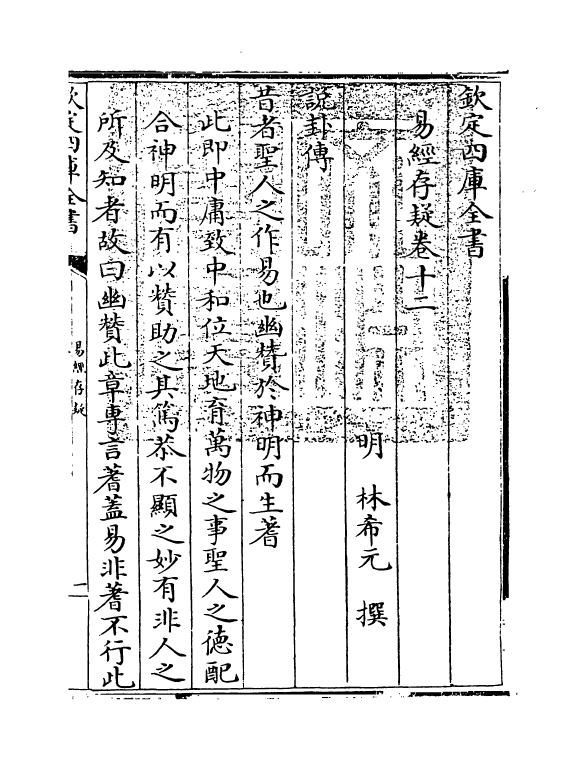 欽定四庫全書
易經存疑卷十二
明 林希元 撰
說卦傳
昔者聖人之作易也幽贊於神明而生蓍
此即中庸致中和位天地育萬物之事聖人之德配
合神明而有以贊助之其篤恭不顯之妙有非人之
所及知者故曰幽贊此章專言蓍蓋易非蓍不行此
欽定四庫全書
易經存疑